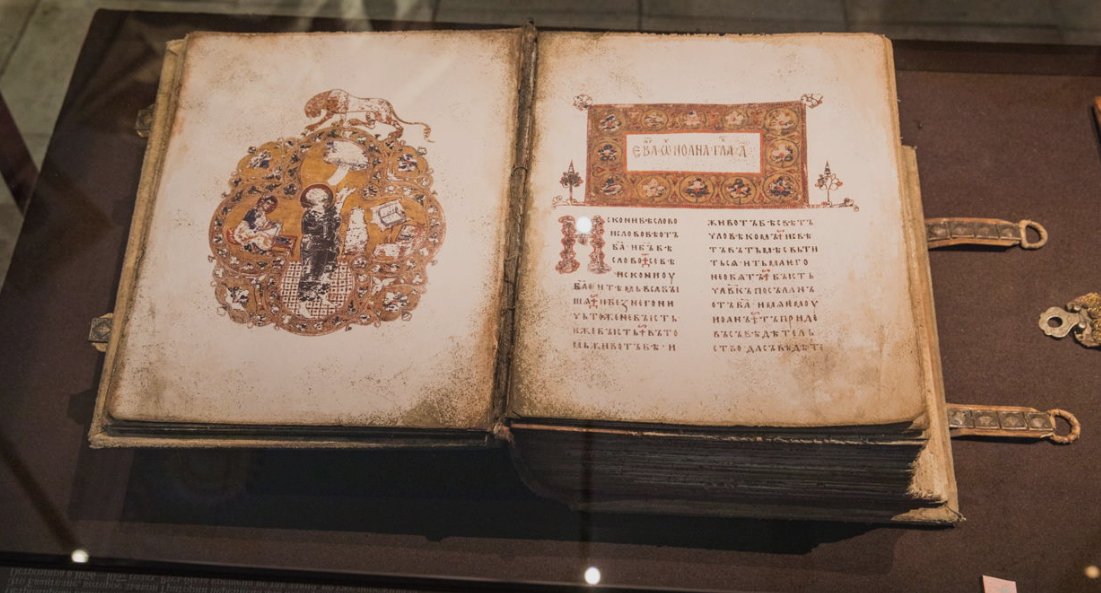 ЕВА҃ · Ѿ ИОАНА · ГЛА · А҃ ·
ИСКОНИБѢСЛОВО
ИСЛОВОБѢОТЪ
БА҃ · ИБЪ҃БѢ
СЛОВО · СЕБѢ
ИСКОНИОУ
БА҃ · ИТѢМЬВЬСАБЫ
ША · ИБЕЗНЕГОНИ
ЧЬТОЖЕНЕБЫСТЬ
ѤЖЕБЫСТЬ · ВЪТО
МЬЖИВОТЪБѢ · И
ЖИВОТЪБѢСВѢТЪ
ЧЛОВѢКОМЪ · ИСВѢ
ТЪВЪТЬМѢСВЬТИ
ТЬСѦ · ИТЬМАѤГО
НЕОБѦТЪ · БЫСТЬ
ЧЛВ҃КЪПОСЪЛАНЪ
ОТЪБА҃ · ИМѦѤМОУ
ИОАНЪ · ТЪПРИДЕ
ВЪСЪВѢДѢТЕЛЬ
СТВО · ДАСЪВѢДѢТЕ